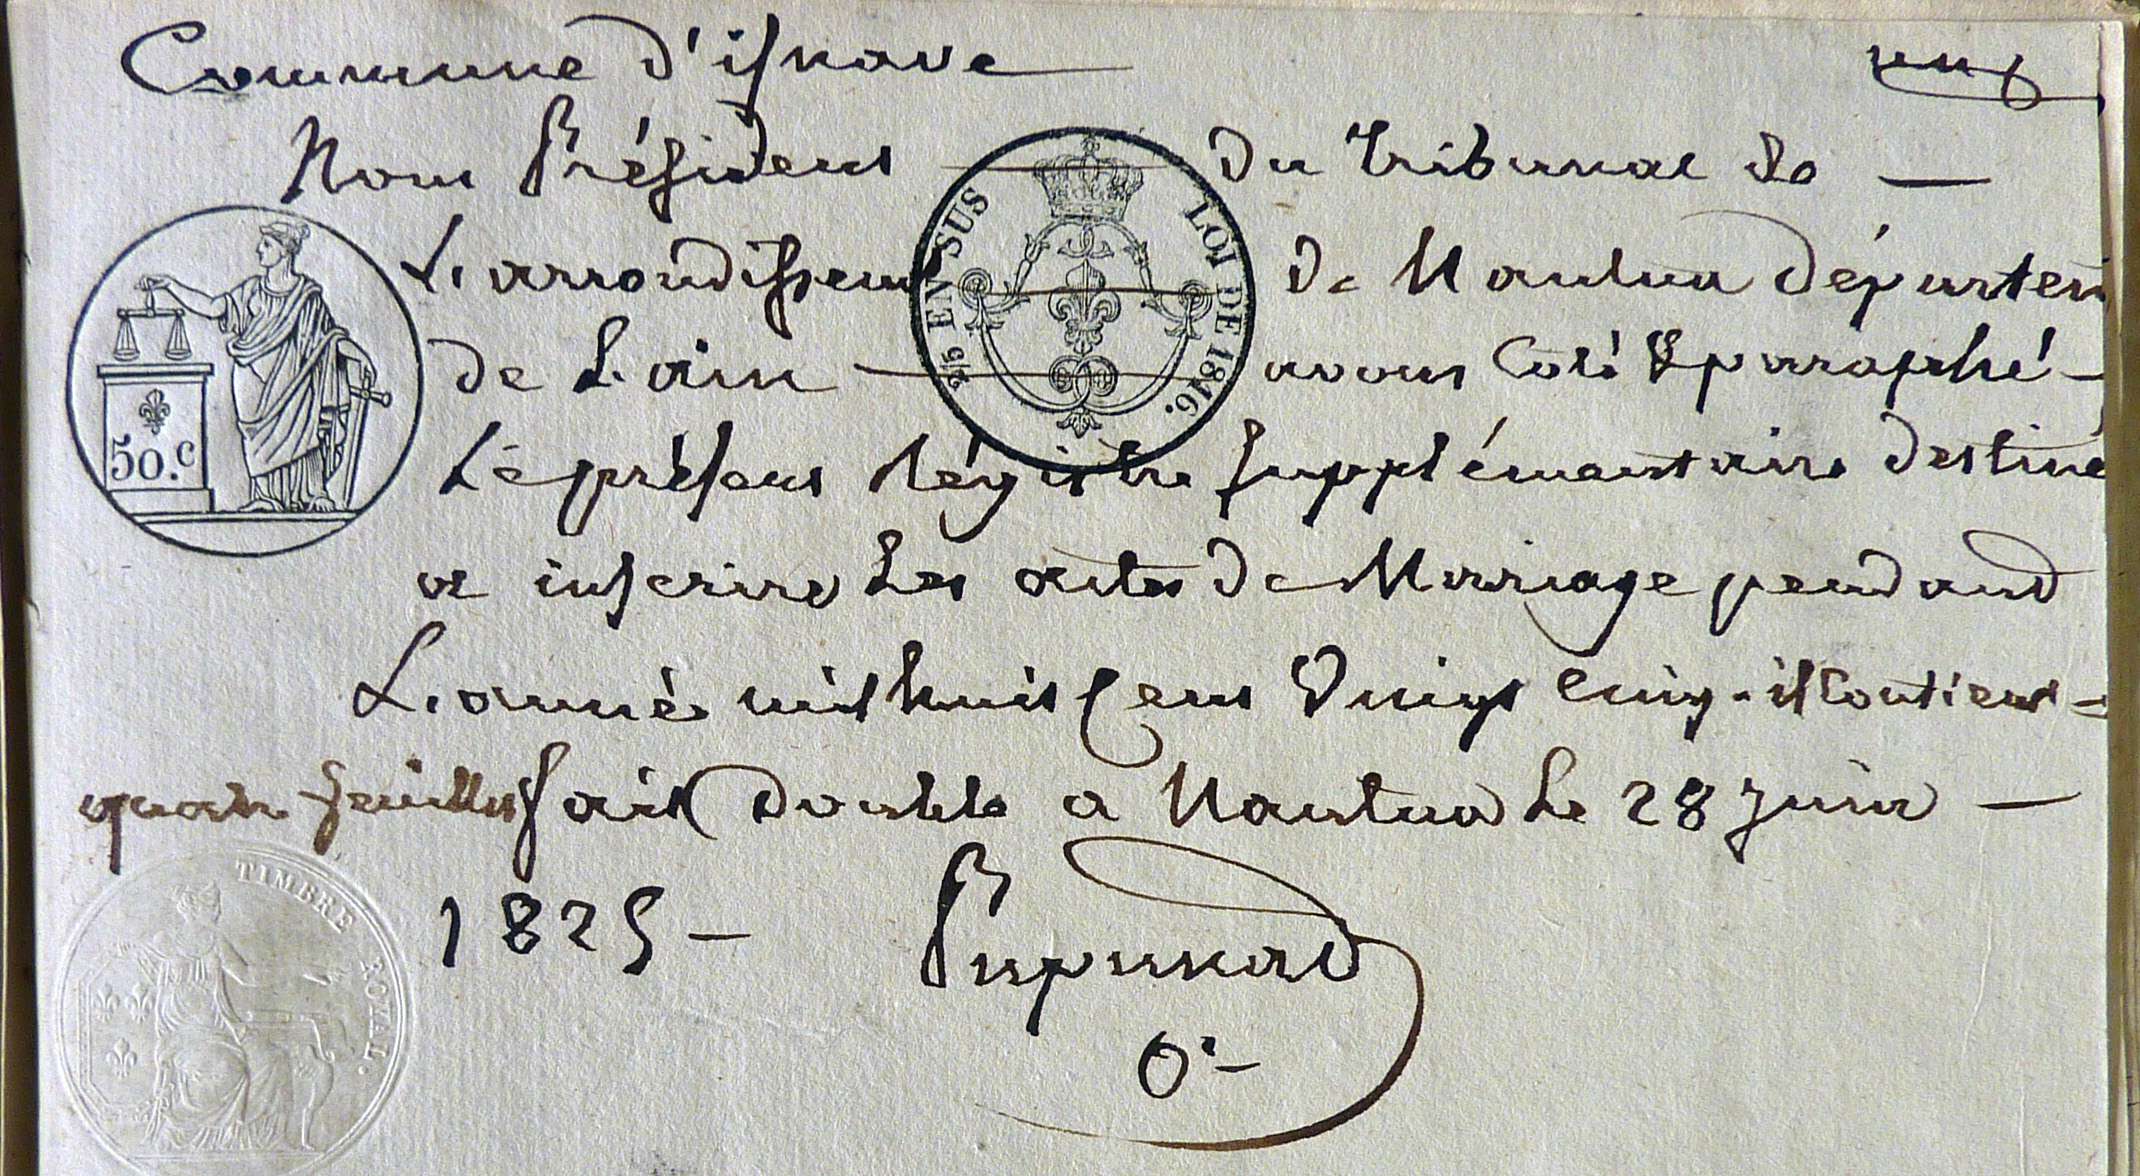 Commune d'isnave
Nous Présidens du tribunal de
L'arrondissem de Nantua départem
de L'ain avons Coté & paraphé
Le présens régistre supplémentaire destiné
a inscrire Les actes de Mariage pendand
L'anné mil huis Cens Vingt Cinq. il Contient
quatre feuilles fait double a Nantua Le 28 Juin
1825
Pt
50.c
2/5 EN SUS
LOI DE 1816.
TIMBRE ROYAL.